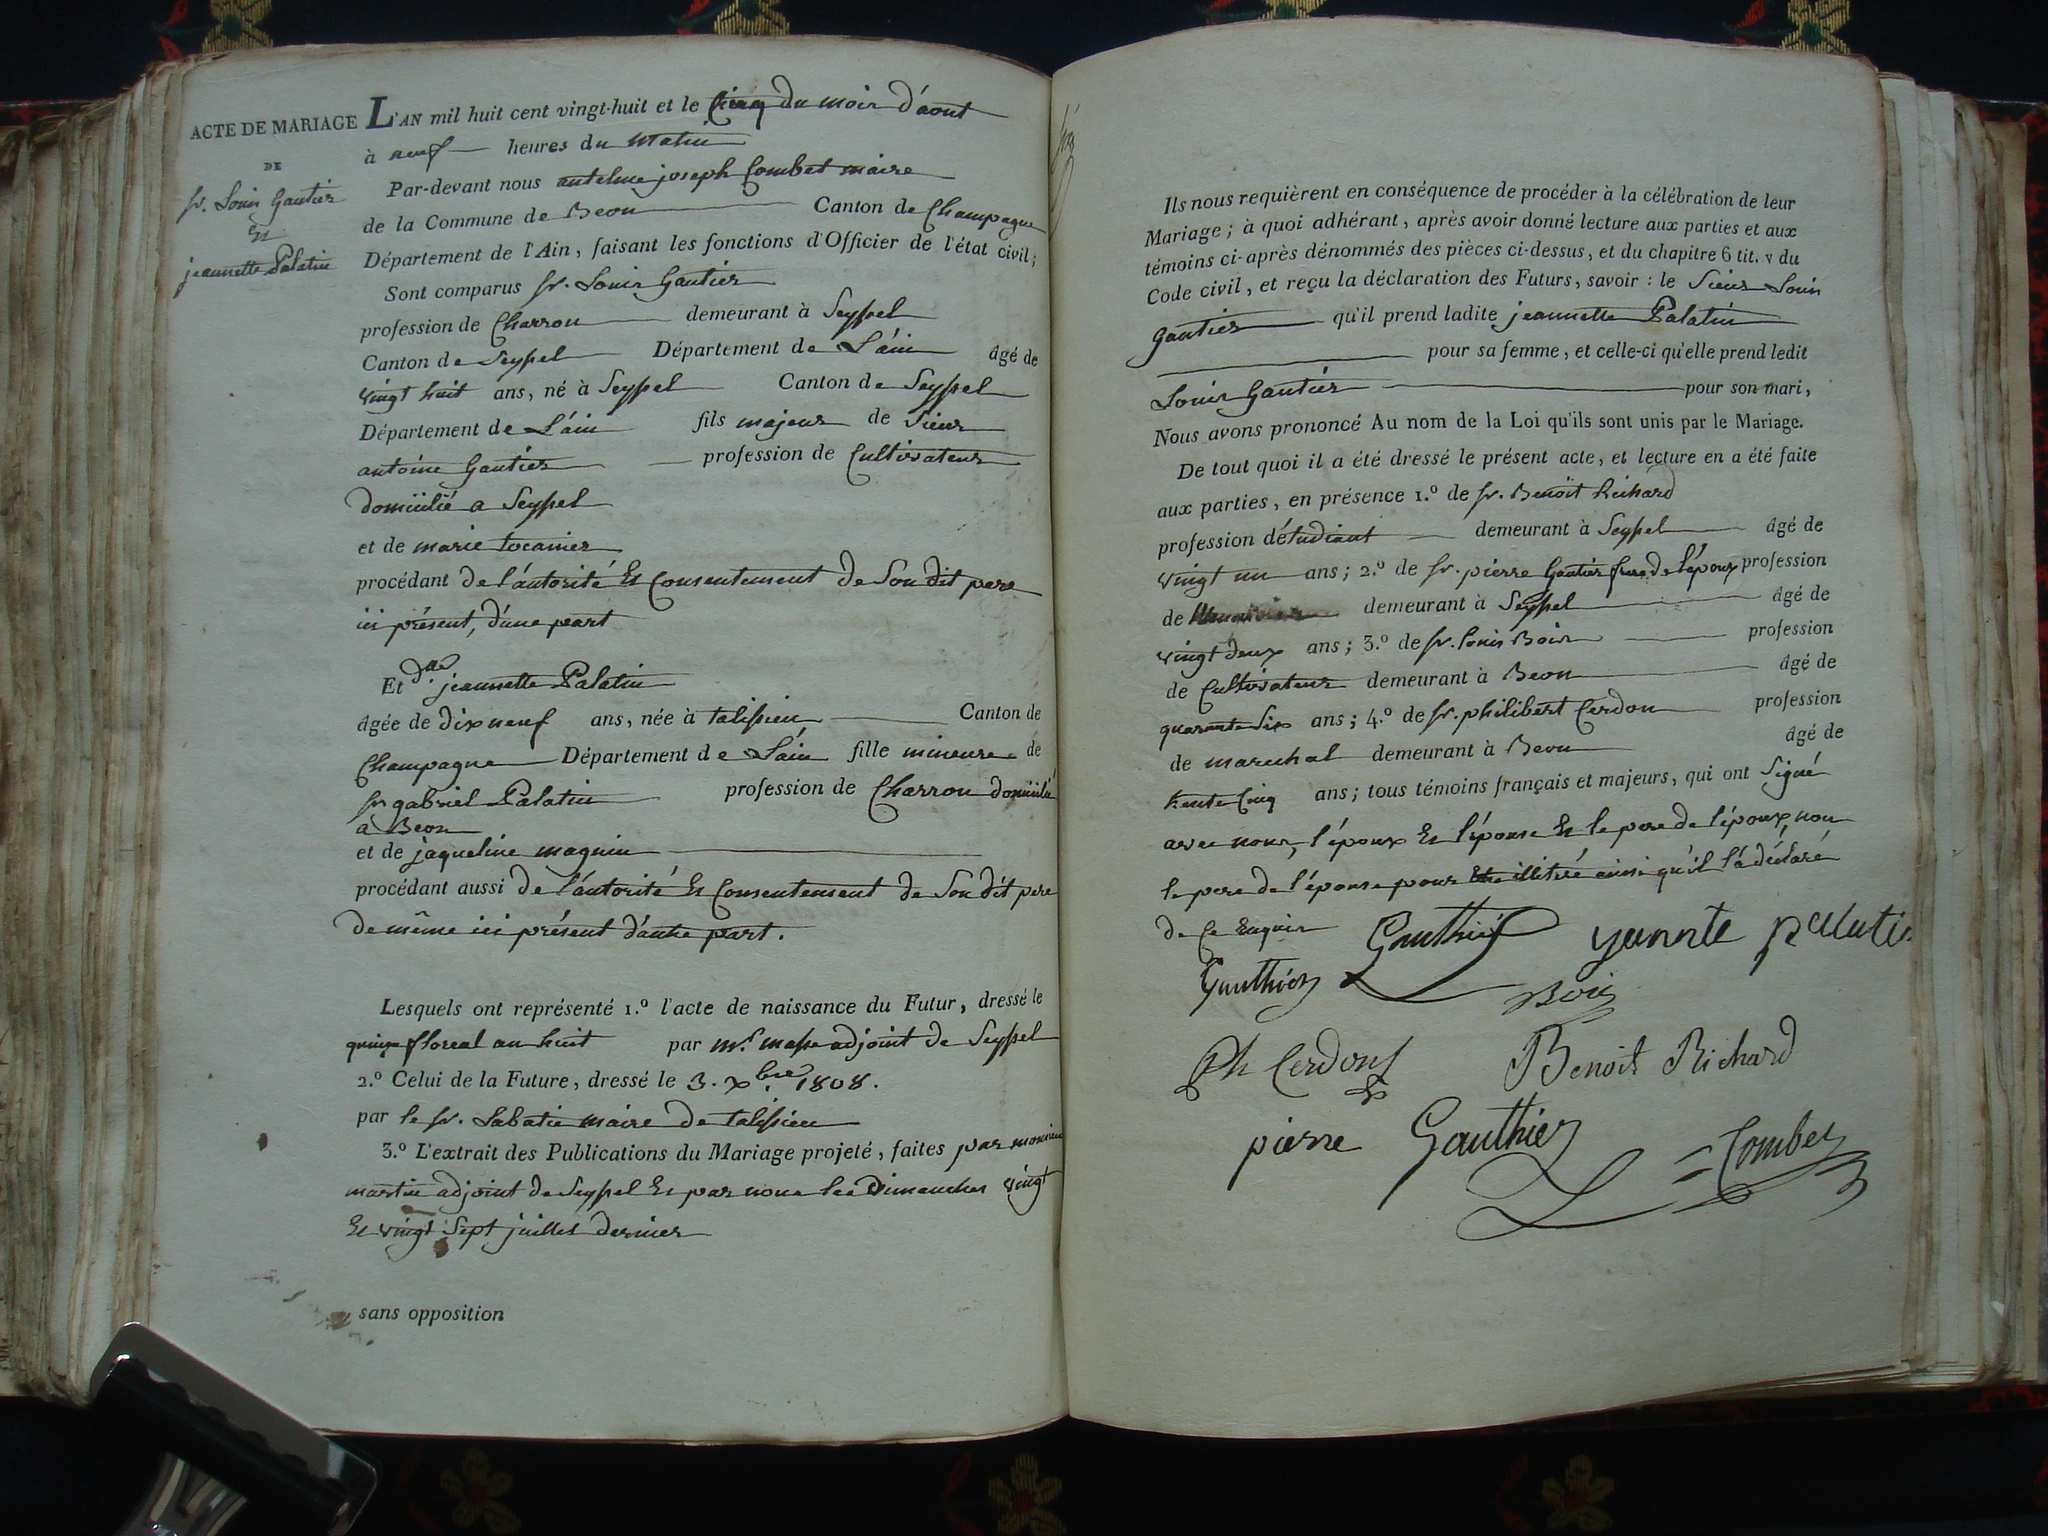 ACTE DE MARIAGE
DE
sr. Louis Gautier
Et
jeannette Palatin
L'AN mil huit cent vingt-huit et le Cinq du mois d'aout
à neuf heures du Matin
Par-devant nous antelme joseph Combet maire
de la Commune de Beon Canton de Champagne
Département de l'Ain, faisant les fonctions d'Officier de l'état civil;
Sont comparus sr. Louis Gautier
profession de Charron demeurant à Seyssel
Canton de Seyssel Département de L'áin âgé de
vingt huit ans, né à Seyssel Canton de Seyssel
Département de L'áin fils majeur de Sieur
antoine Gautier profession de Cultivateur
domicilié a Seyssel
et de marie tocanier
procédant de l'autorité Et Consentement de Son dit pere
ici présent, d'une part
Et dlle. jeannette Palatin
âgée de dix neuf ans, née à talissieu Canton de
Champagne Département de L'áin fille mineure de
sr gabriel Palatin profession de Charron domicilié
a Beon
et de jaqueline magnin
procédant aussi de l'autorité Et Consentement de Son dit pere
de même ici présent d'autre part.
Lesquels ont représenté 1.º l'acte de naissance du Futur, dressé le
quinze floreal an huit par mr. masse adjoint de Seyssel
2.º Celui de la Future, dressé le 3. xbre 1808.
par le sr. Labatie maire de talissieu
3.º L'extrait des Publications du Mariage projeté, faites par monsieur
martin adjoint de Seyssel Et par nous les Dimanches vingt
Et vingt Sept juillet dernier
sans opposition
Ils nous requièrent en conséquence de procéder à la célébration de leur
Mariage; à quoi adhérant, après avoir donné lecture aux parties et aux
témoins ci-après dénommés des pièces ci-dessus, et du chapitre 6 tit. v du
Code civil, et reçu la déclaration des Futurs, savoir: le Sieur Louis
Gautier qu'il prend ladite jeannette Palatin
pour sa femme, et celle-ci qu'elle prend ledit
Louis Gautier pour son mari,
Nous avons prononcé Au nom de la Loi qu'ils sont unis par le Mariage.
De tout quoi il a été dressé le présent acte, et lecture en a été faite
aux parties, en présence 1.º de sr. Benoit Richard
profession d'étudiant demeurant à Seyssel âgé de
vingt un ans; 2.º de sr. pierre Gautier frere de l'époux profession
de demeurant à Seyssel âgé de
vingt deux ans; 3.º de sr. Louis Bois profession
de Cultivateur demeurant à Beon âgé de
quarante Six ans; 4.º de sr. philibert Cerdon profession
de marechal demeurant à Beon âgé de
trente Cinq ans; tous témoins français et majeurs, qui ont Signé
avec nous, l'époux Et l'épouse Et le pere de l'époux, non
le pere de l'épouse pour Etre illitré ainsi qu'il l'a déclaré
de Ce Enquis
Gauthier yannete
Gauthier Bois
Ph Cerdon Benoit Richard
pierre Gauthier Combet